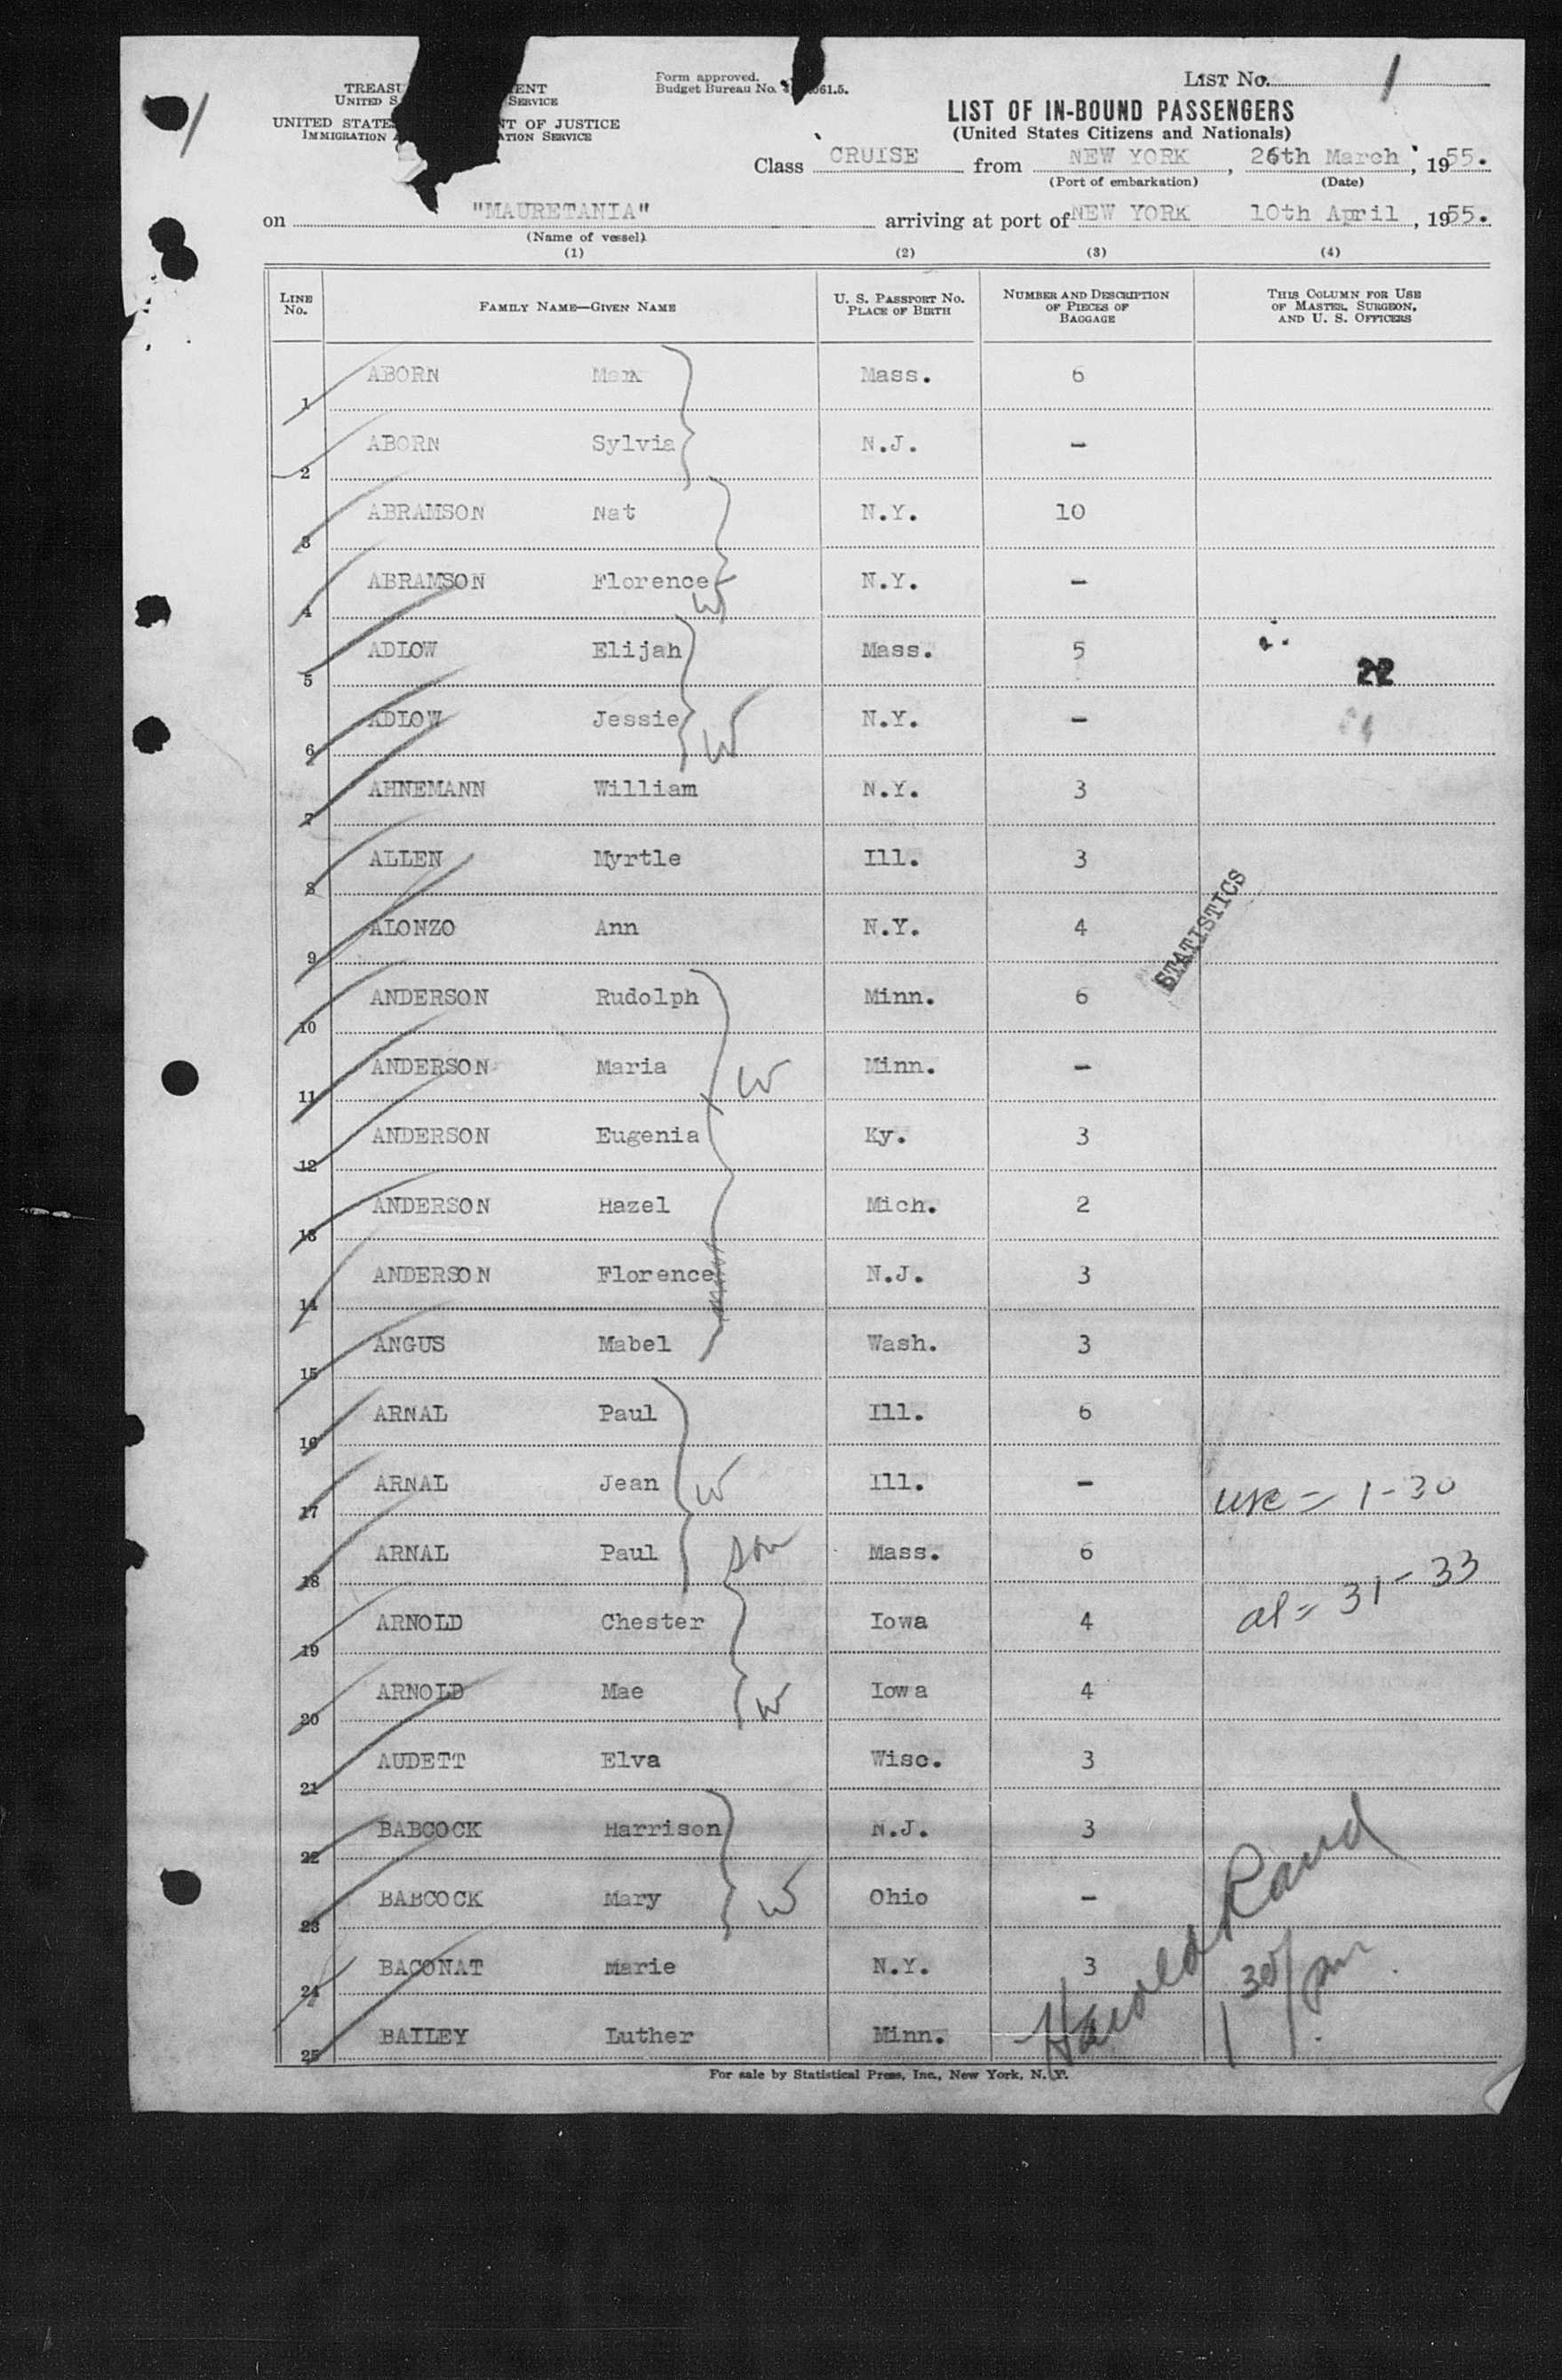 LIST No. 1
TREASU ENT
UNITED S SERVICE
UNITED STATE NT OF JUSTICE
IMMIGRATION ATION SERVICE
Form approved.
Budget Bureau No. 061.5.
LIST OF IN-BOUND PASSENGERS
(United States Citizens and Nationals)
Class CRUISE from NEW YORK, 26th March, 1955.
(Port of embarkation) (Date)
on "MAURETANIA" arriving at port of NEW YORK 10th April, 1955.
(Name of vessel)
(1) (2) (3) (4)
LINE No. FAMILY NAME—GIVEN NAME U. S. PASSPORT No. PLACE OF BIRTH NUMBER AND DESCRIPTION OF PIECES OF BAGGAGE THIS COLUMN FOR USE OF MASTER, SURGEON, AND U. S. OFFICERS
1 ABORN Mass. 6
2 ABORN Sylvia N.J. -
3 ABRAMSON Nat N.Y. 10
4 ABRAMSON Florence W N.Y. -
5 ADLOW Elijah Mass. 5 22
6 ADLOW Jessie W N.Y. -
7 AHNEMANN William N.Y. 3
8 ALLEN Myrtle Ill. 3
9 ALONZO Ann N.Y. 4
STATISTICS
10 ANDERSON Rudolph Minn. 6
11 ANDERSON Maria W Minn. -
12 ANDERSON Eugenia Ky. 3
13 ANDERSON Hazel Mich. 2
14 ANDERSON Florence N.J. 3
15 ANGUS Mabel Wash. 3
16 ARNAL Paul Ill. 6
17 ARNAL Jean W Ill. - usc = 1-30
18 ARNAL Paul son Mass. 6
al = 31-33
19 ARNOLD Chester Iowa 4
20 ARNOLD Mae W Iowa 4
21 AUDETT Elva Wisc. 3
22 BABCOCK Harrison N.J. 3
23 BABCOCK Mary W Ohio -
24 BACONAT Marie N.Y. 3
25 BAILEY Luther Minn.
Harold Rand
1 30/pm
For sale by Statistical Press, Inc., New York, N. Y.